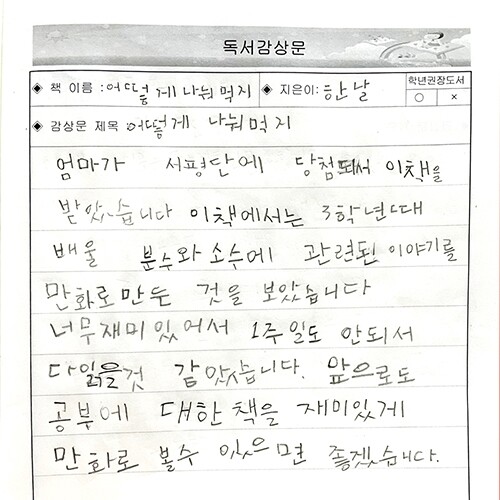 독서감상문
◈ 책 이름 : 어떻게 나눠먹지 ◈ 지은이: 한날 학년권장도서 ○ ×
◈ 감상문 제목 어떻게 나눠먹지
엄마가 서평단에 당첨되서 이책을
받았습니다 이책에서는 3학년때
배울 분수와 소수에 관련된 이야기를
만화로만든 것을 보았습니다
너무재미있어서 1주일도 안되서
다읽을것 같았습니다. 앞으로도
공부에 대한 책을 재미있게
만화로 볼수 있으면 좋겠습니다.